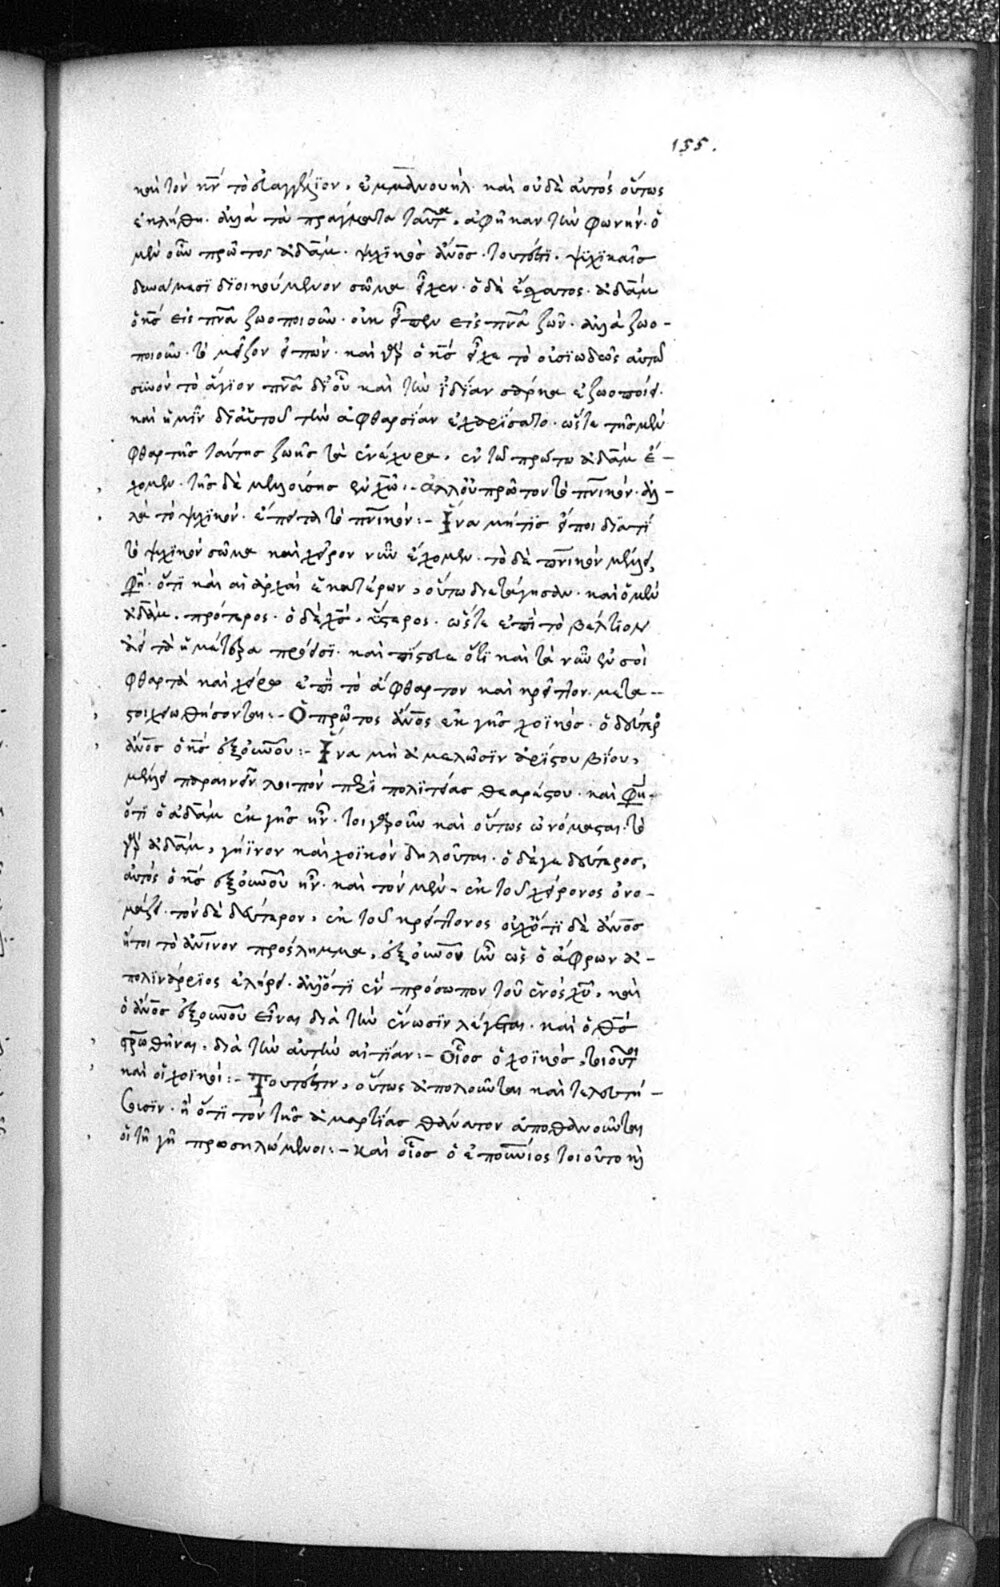 155.
καὶ τὸν κν̅ τὸ εὐαγγέλϊον, ἐμμανουήλ· καὶ οὐδὲ αὐτὸς οὕτως
ἐκλήθη· ἀλλὰ τὰ πράγματα ταῦτα, ἀφῆκαν τὴν φωνήν· ὁ
μὲν οὖν πρῶτος ἀδάμ· ψυχϊκὸς ἄνο̅ς· τουτέστϊ, ψυχϊκαῖς
δυνάμεσϊ δϊοικούμενον σῶμα εἶχεν· ὁ δὲ ἔσχατος ἀδὰμ
ὁ κ̅ς εἰς πν̅α ζωοποιοῦν· οὐκ εἶπεν εἰς πν̅α ζῶν· ἀλλὰ ζωο-
ποιοῦν· τὸ μεῖζον εἰπών· καὶ γὰρ ὁ κ̅ς εἶχε τὸ οὐσϊωδῶς αὐτῷ
συνὸν τὸ ἅγϊον πν̅α δι' οὗ καὶ τὴν ἰδίαν σάρκα ἐζωοποίει·
καὶ ἡμῖν δϊ' αὐτοῦ τὴν ἀφθαρσίαν ἐχαρίσατο· ὥστε τῆς μὲν
φθαρτῆς ταύτης ζωῆς τὰ ἐνέχυρα, ἐν τῷ πρώτῳ ἀδὰμ ἔ-
χομεν· τῆς δὲ μελλούσης ἐν χ̅ω:- ἀλλ' οὐ πρῶτον τὸ πν̅ικόν· ἀλ-
λὰ τὸ ψυχϊκόν· ἔπειτα τὸ πν̅ικόν:- Ἵνα μήτϊς εἴποι δϊατί
τὸ ψυχϊκὸν σῶμα καὶ χεῖρον νῦν ἔχομεν· τὸ δὲ πν̅ικὸν μέλλει,
φη̅· ὅτϊ καὶ αἱ ἀρχαὶ ἑκατέρων, οὕτω διετάγησαν· καὶ ὁ μὲν
ἀδάμ, πρότερος· ὁ δὲ χ̅ς, ὕστερος· ὥστε ἐπὶ τὸ βέλτϊον
ἀεὶ τὰ ἡμέτερα πρόεισϊ· καὶ πίστευε ὅτϊ καὶ τὰ νῦν ἐν σοὶ
φθαρτὰ καὶ χείρω ἐπὶ τὸ ἄφθαρτον καὶ κρεῖττον μετα-
στοιχειωθήσονται:- Ὁ πρῶτος ἄνο̅ς ἐκ γῆς χοϊκός· ὁ δεύτερος
ἄνο̅ς ὁ κ̅ς ἐξ οὐνοῦ:- Ἵνα μὴ ἀμελῶσϊν ἀρίστου βίου,
μέλλει παραινεῖν λοιπὸν περὶ πολϊτείας θεαρέστου· καὶ φη̅·
ὅτϊ ὁ ἀδὰμ ἐκ γῆς ἦν· τοιγαροῦν καὶ οὕτως ὠνόμασται· τὸ
γὰρ ἀδάμ, γήϊνον καὶ χοϊκὸν δηλοῦται· ὁ δέ γε δεύτερος,
αὐτὸς ὁ κ̅ς ἐξ οὐνοῦ ἦν· καὶ τὸν μὲν, ἐκ τοῦ χείρονος ὀνο-
μάζει· τὸν δὲ δεύτερον, ἐκ τοῦ κρείττονος οὐχ' ὅτϊ δὲ ἄνο̅ς
ἤτοι τὸ ἀν̅ινον πρόσλημμα, ἐξ οὐνοῦ ἦν ὡς ὁ ἄφρων ἀ-
πολϊνάρϊος ἐλήρει· ἀλλ' ὅτϊ ἓν πρόσωπον τοῦ ἑνὸς χυ̅, καὶ
ὁ ἄνο̅ς ἐξ οὐνοῦ εἶναι διὰ τὴν ἕνωσϊν λέγεται· καὶ ὁ θ̅ς
στρωθῆναι, διὰ τὴν αὐτὴν αἰτίαν:- Οἷος ὁ χοϊκός, τοιοῦτοι
καὶ οἱ χοϊκοί:- Τουτέστϊν, οὕτως ἀπολοῦνται καὶ τελευτή-
σουσϊν· ἢ ὅτϊ τὸν τῆς ἁμαρτίας θάνατον ἀποθανοῦνται
οἱ τῇ γῇ προσηλωμένοι:- Καὶ οἷος ὁ ἐπουνιος τοιοῦτο κ(αὶ)